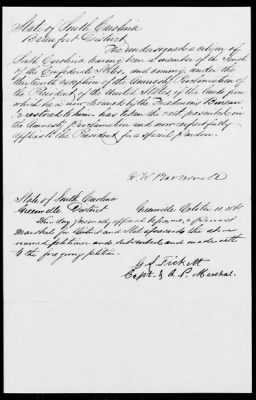 State of South Carolina
Beaufort District.
The undersigned a citizen of
South Carolina having been a member of the Senate
of the Confederate States, and coming under the
thirteenth exception of the Amnesty Proclamation of
the President of the United States, if the lands from
which he is now debarred by the Freedmens Bureau
be restored to him has taken the oath prescribed in
the Amnesty Proclamation and now respectfully
applies to the President for a special pardon.
R. W. Barnwell
State of South Carolina
Greenville District
Greenville October
This day personally appeared before me, a provost
Marshal for District and State aforesaid the above
named petitioner and subscribed and made oath
to the foregoing petition.
Capt. & A. P. Marshal.